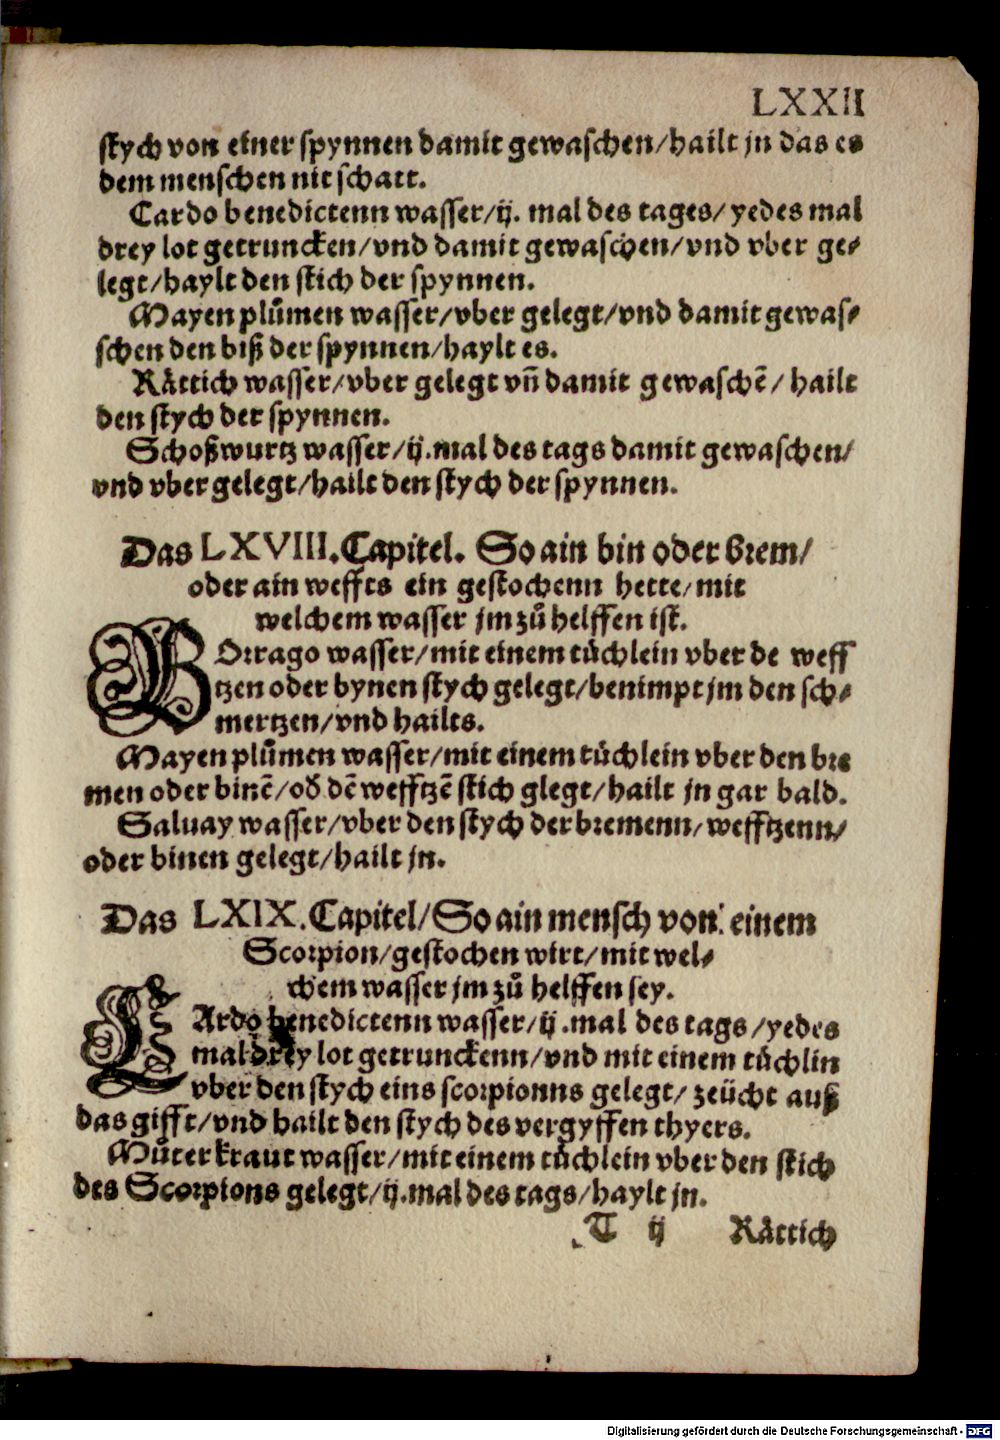 LXXII
stych von einer spynnen damit gewaschen/hailt jn das es
dem menschen nit schatt.
Cardo benedictenn wasser/ij. mal des tages/ yedes mal
drey lot getruncken/vnd damit gewaschen/vnd vber ge⸗
legt/haylt den stich der spynnen.
Mayen plůmen wasser/vber gelegt/vnd damit gewas⸗
schen den biß der spynnen/haylt es.
Rättich wasser/vber gelegt vñ damit gewaschẽ/ hailt
den stych der spynnen.
Schoßwurtz wasser/ij.mal des tags damit gewaschen/
vnd vber gelegt/hailt den stych der spynnen.
Das LXVIII.Capitel. So ain bin oder brem/
oder ain weffts ein gestochenn hette/mit
welchem wasser jm zů helffen ist.
BOrrago wasser/mit einem tüchlein vber de weff
tzen oder bynen stych gelegt/benimpt jm den sch⸗
mertzen/vnd hailts.
Mayen plůmen wasser/mit einem tüchlein vber den bre
men oder binẽ/od dẽ wefftzẽ stich glegt/hailt jn gar bald.
Saluay wasser/vber den stych der bremenn/wefftzenn/
oder binen gelegt/hailt jn.
Das LXIX.Capitel/So ain mensch von einem
Scorpion/gestochen wirt/mit wel⸗
chem wasser jm zů helffen sey.
CArdo benedictenn wasser/ij.mal des tags/yedes
mal drey lot getrunckenn/vnd mit einem tüchlin
vber den stych eins scorpionns gelegt/ zeücht auß
das gifft/vnd hailt den stych des vergyfften thyers.
Můterkraut wasser/mit einem tüchlein vber den stich
des Scorpions gelegt/ij.mal des tags/haylt jn.
T ij Rättich
Digitalisierung gefördert durch die Deutsche Forschungsgemeinschaft - DFG